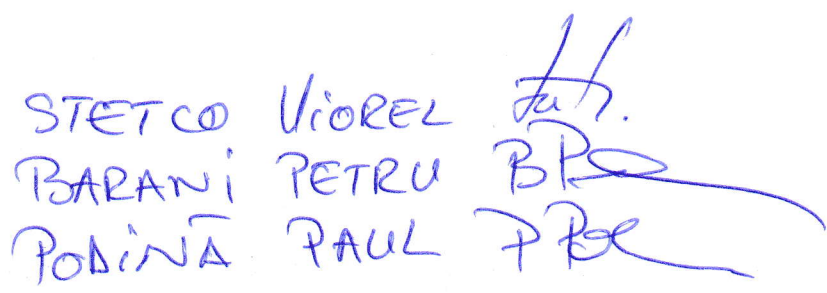 STETCO VIOREL
BARANI PETRU
PODINĂ PAUL